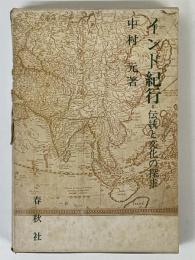 インド紀行
伝統と文化の探求
中村 元著
春秋社